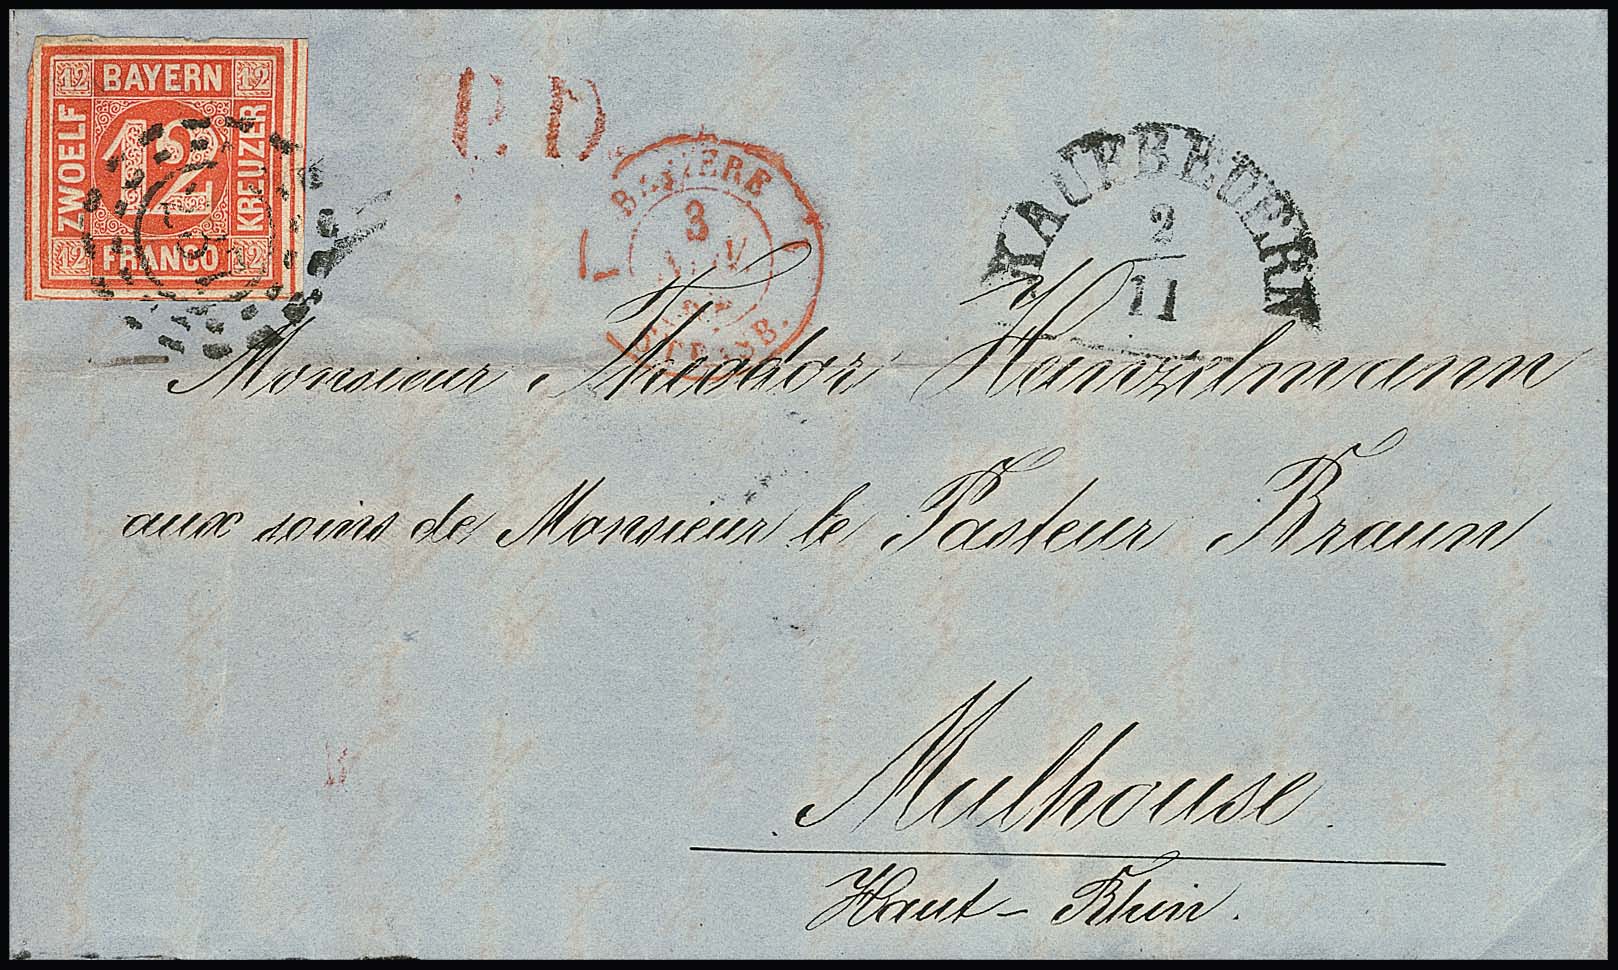 12 BAYERN 12
ZWOELF 12 KREUZER
12 FRANCO 12
P.D.
BAVIERE
3 NOV.
STRASB.
KAUFBEUERN
2/11
Monsieur Theodor Heinzelmann
aux soins de Monsieur le Pasteur Braun
Mulhouse.
Haut-Rhin.